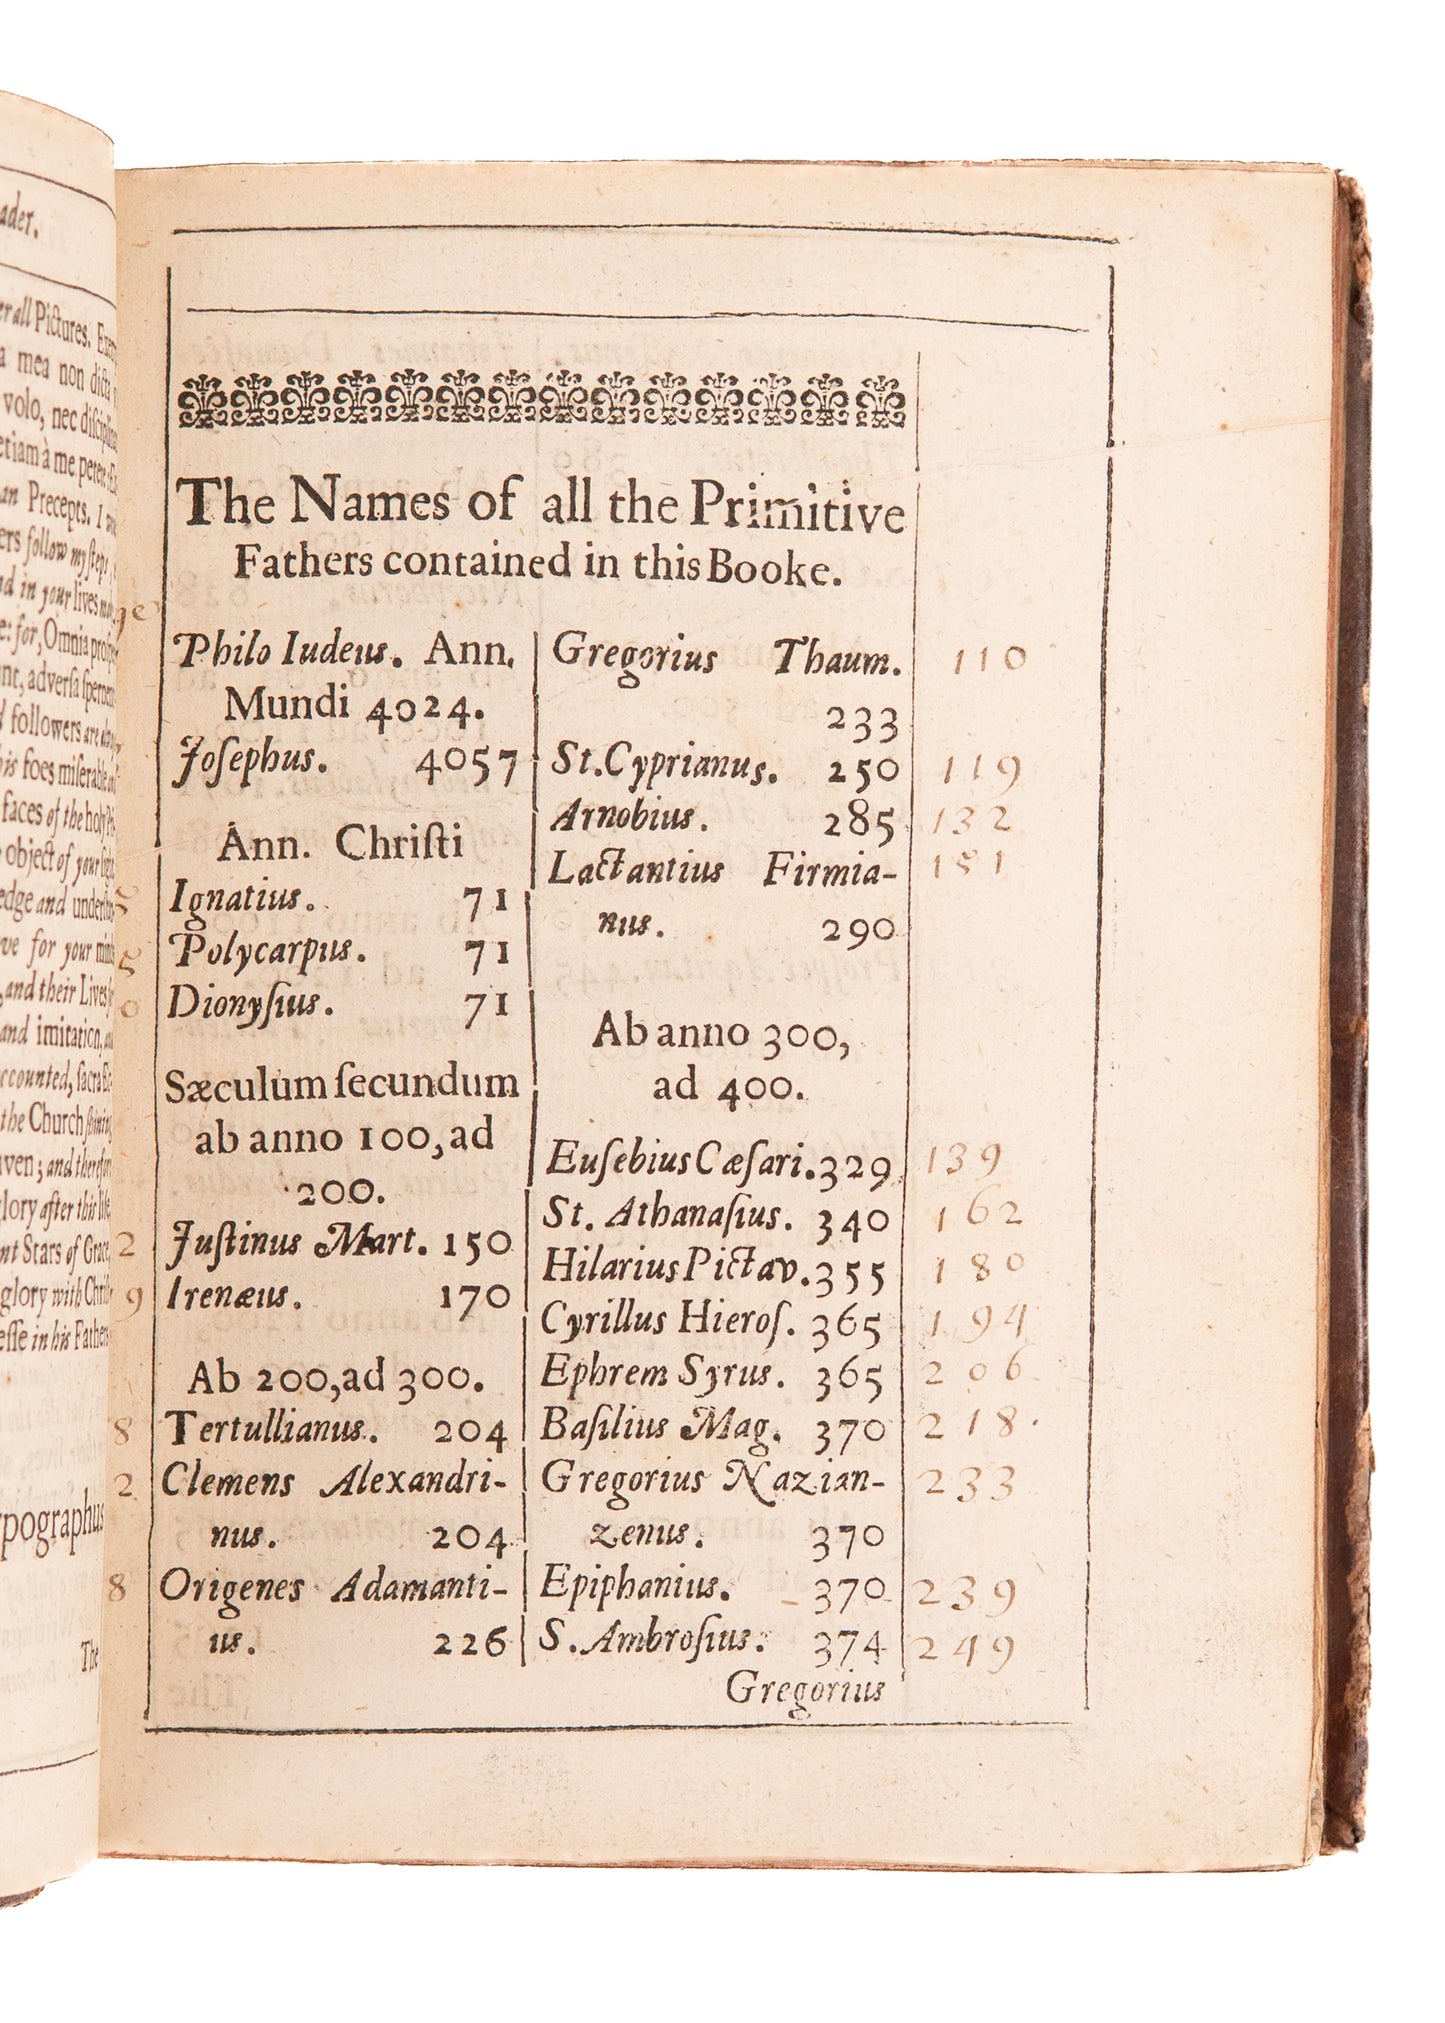 ader.
er all Pictures. Ex
a mea non dicta
volo, nec discipl
etiam à me petere
an Precepts. I
ers follow my steps
d in your lives
e: for, Omnia
nt, adversa
d followers are
his foes miserable
faces of the holy
object of your
edge and
ve for your mind
, and their Lives
and imitation,
ccounted, sacra
the Church shining
ven; and therefore
glory after this life
nt Stars of Grace
glory with Christ
esse in his Fathers
ypographus
The
The Names of all the Primitive
Fathers contained in this Booke.
Philo Iudeus. Ann.
Mundi 4024.
Joſephus. 4057
Ann. Chriſti
Ignatius. 71
Polycarpus. 71
Dionyſius. 71
Sæculum ſecundum
ab anno 100, ad
200.
2 Juſtinus Mart. 150
9 Irenæus. 170
Ab 200, ad 300.
8 Tertullianus. 204
2 Clemens Alexandri-
nus. 204
8 Origenes Adamanti-
us. 226
Gregorius Thaum. 110
233
St. Cyprianus. 250 119
Arnobius. 285 132
Lactantius Firmia- 151
nus. 290
Ab anno 300,
ad 400.
Euſebius Cæſari. 329 139
St. Athanaſius. 340 162
Hilarius Pictav. 355 180
Cyrillus Hieroſ. 365 194
Ephrem Syrus. 365 206
Baſilius Mag. 370 218.
Gregorius Nazian- 233
zenus. 370
Epiphanius. 370 239
S. Ambroſius. 374 249
Gregorius